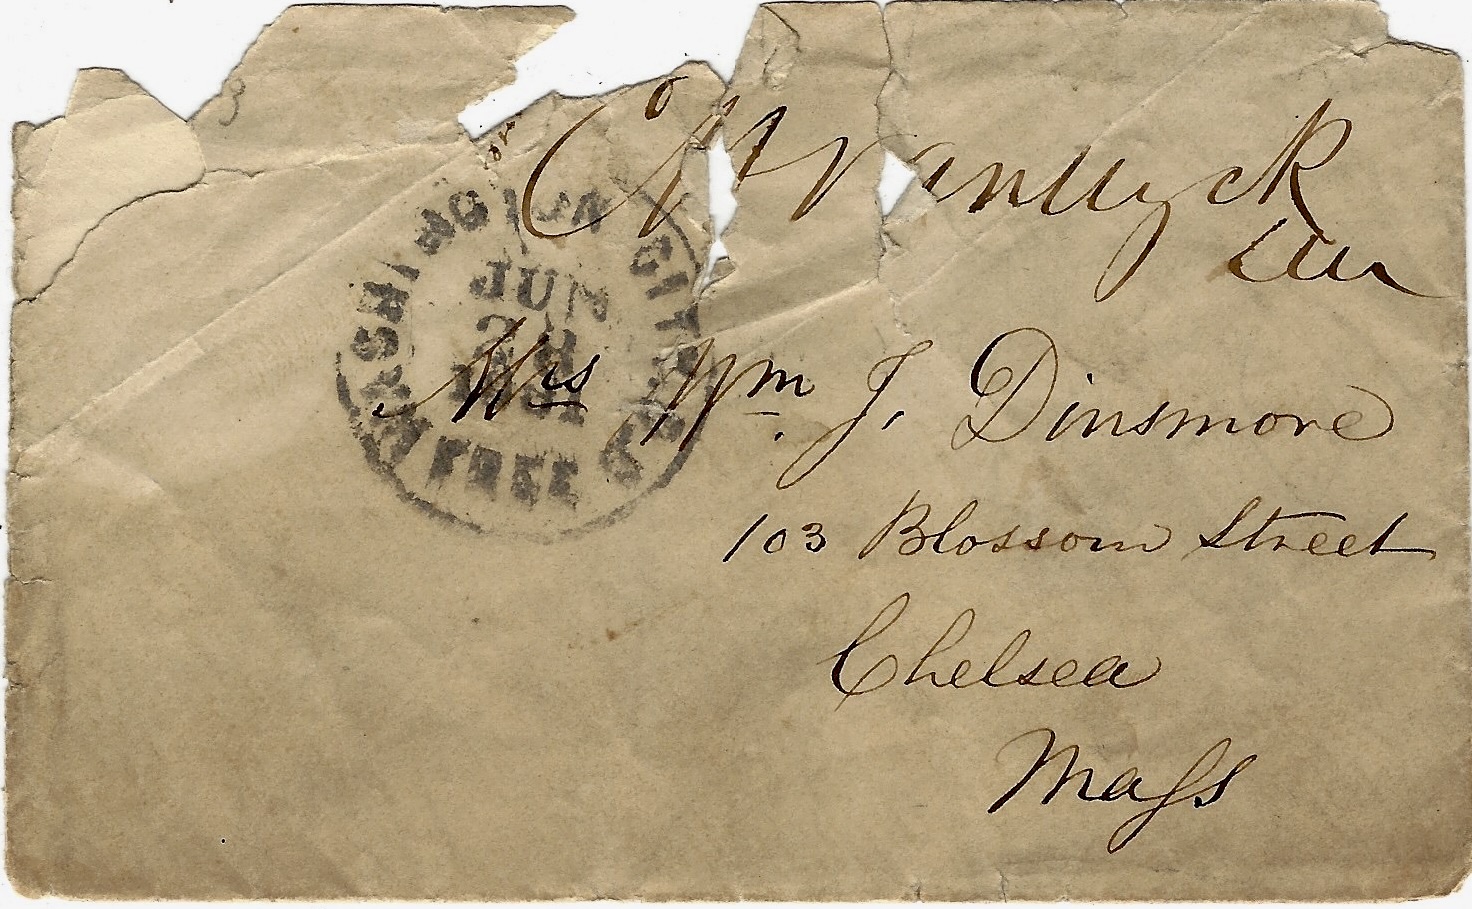 C H Van Wyck
Mrs Wm J. Dinsmore
103 Blossom Street
Chelsea
Mass
WASHINGTON CITY
JUN
28
1861
FREE